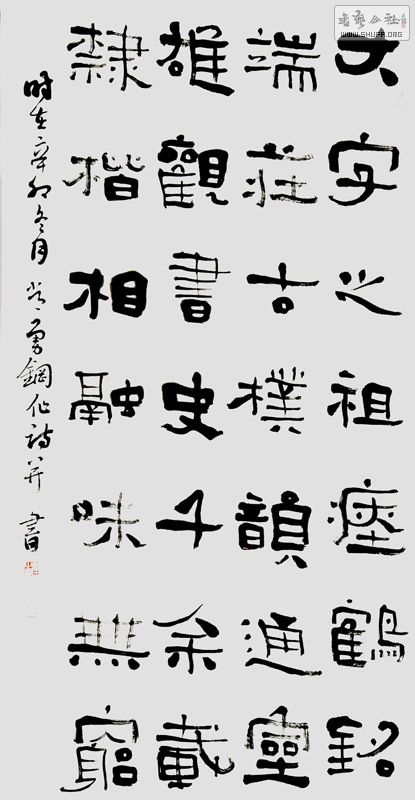 大字之祖瘞鶴銘
端莊古樸韻通靈
雄觀書史千余載
隸楷相融味無窮
時在辛卯冬月 勇鋼作詩并書
WWW.SHUFA.ORG